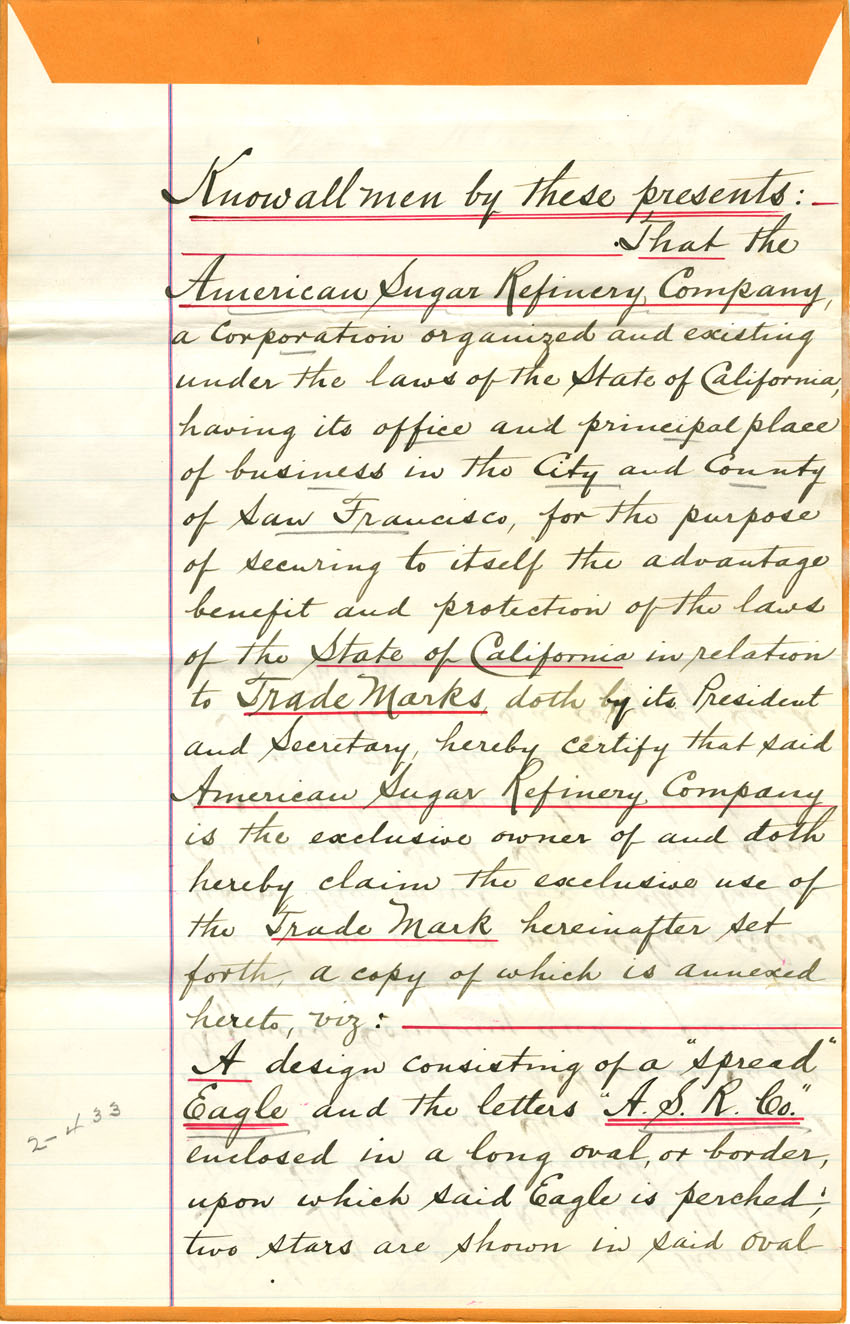 Know all men by these presents:
That the
American Sugar Refinery Company,
a corporation organized and existing
under the laws of the State of California,
having its office and principal place
of business in the City and County
of San Francisco, for the purpose
of securing to itself the advantage
benefit and protection of the laws
of the State of California in relation
to Trade Marks, doth by its President
and Secretary, hereby certify that said
American Sugar Refinery Company
is the exclusive owner of and doth
hereby claim the exclusive use of
the Trade Mark hereinafter set
forth, a copy of which is annexed
hereto, viz:
A design consisting of a "spread"
Eagle and the letters "A. S. R. Co."
2-433
enclosed in a long oval, or border,
upon which said Eagle is perched;
two stars are shown in said oval